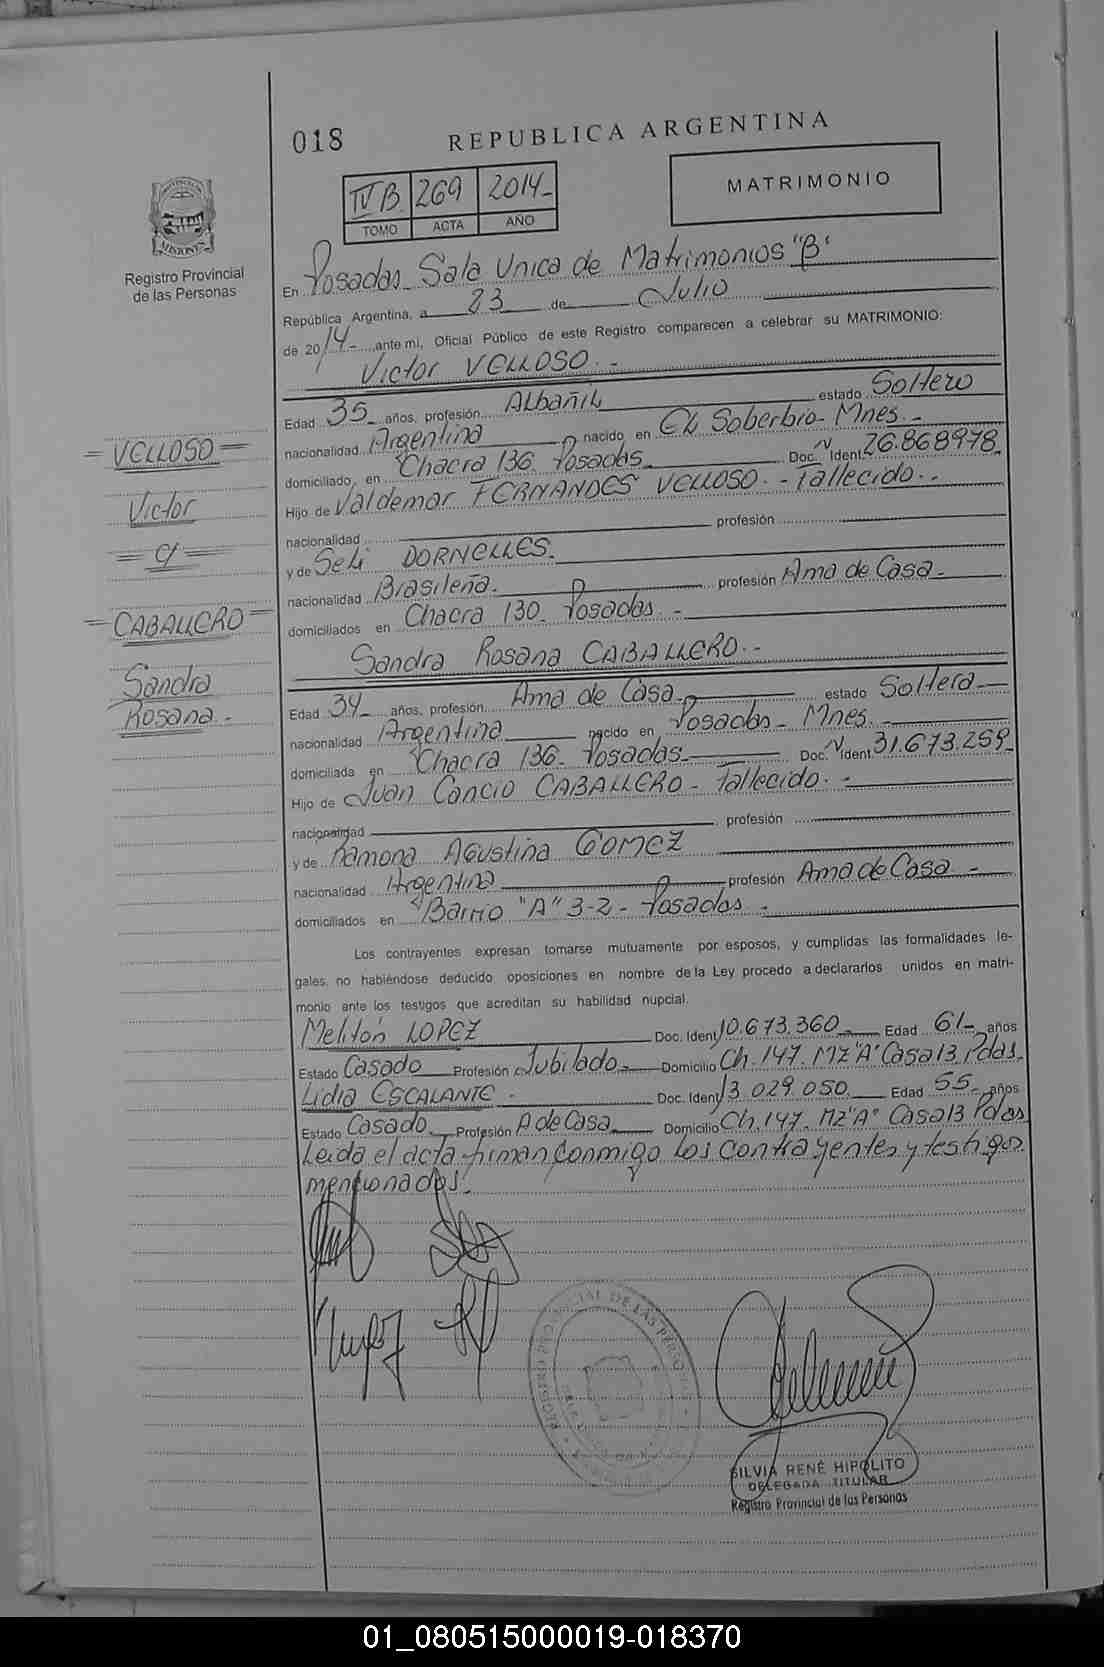 018
REPUBLICA ARGENTINA
IV B. 269 2014_
TOMO ACTA AÑO
MATRIMONIO
PROVINCIA DE
MISIONES
Registro Provincial
de las Personas
En Posadas_ Sala Unica de Matrimonios "B"
República Argentina, a 23 de Julio
de 2014_ ,ante mi, Oficial Público de este Registro comparecen a celebrar su MATRIMONIO:
Victor VELLOSO._
Edad 35_ años, profesión Albañil estado Soltero
nacionalidad Argentina nacido en El Soberbio_ Mnes_
domiciliado en Chacra 136_ Posadas_ Doc. Ident. 26.868.978_
Hijo de Valdemar FERNANDES VELLOSO._ Fallecido._
nacionalidad profesión
y de Seli DORNELLES.
nacionalidad Brasileña._ profesión Ama de Casa_
domiciliados en Chacra 130_ Posadas._
Sandra Rosana CABALLERO._
Edad 34_ años, profesión Ama de Casa_ estado Soltera_
nacionalidad Argentina nacido en Posadas_ Mnes._
domiciliada en Chacra 136_ Posadas_ Doc. Ident. 31.673.259_
Hijo de Juan Cancio CABALLERO_ Fallecido._
nacionalidad profesión
y de Ramona Agustina GOMEZ
nacionalidad Argentina profesión Ama de Casa_
domiciliados en Barrio "A" 3-2_ Posadas._
Los contrayentes expresan tomarse mutuamente por esposos, y cumplidas las formalidades le-
gales, no habiéndose deducido oposiciones en nombre de la Ley procedo a declararlos unidos en matri-
monio ante los testigos que acreditan su habilidad nupcial.
Melitón LOPEZ Doc. Ident 10.673.360_ Edad 61_ años
Estado Casado Profesión Jubilado_ Domicilio Ch. 147. MZ "A" Casa 13 Pdas.
Lidia ESCALANTE. Doc. Ident 13.029.050. Edad 55_ años
Estado Casado_ Profesión A de Casa_ Domicilio Ch. 147. MZ "A" Casa 13 Pdas
Leida el acta firman conmigo los contrayentes y testigos
mencionados.
= VELLOSO =
Victor
= c/ =
= CABALLERO =
Sandra
Rosana._
SILVIA RENÉ HIPÓLITO
DELEGADA TITULAR
Registro Provincial de las Personas
01_080515000019-018370